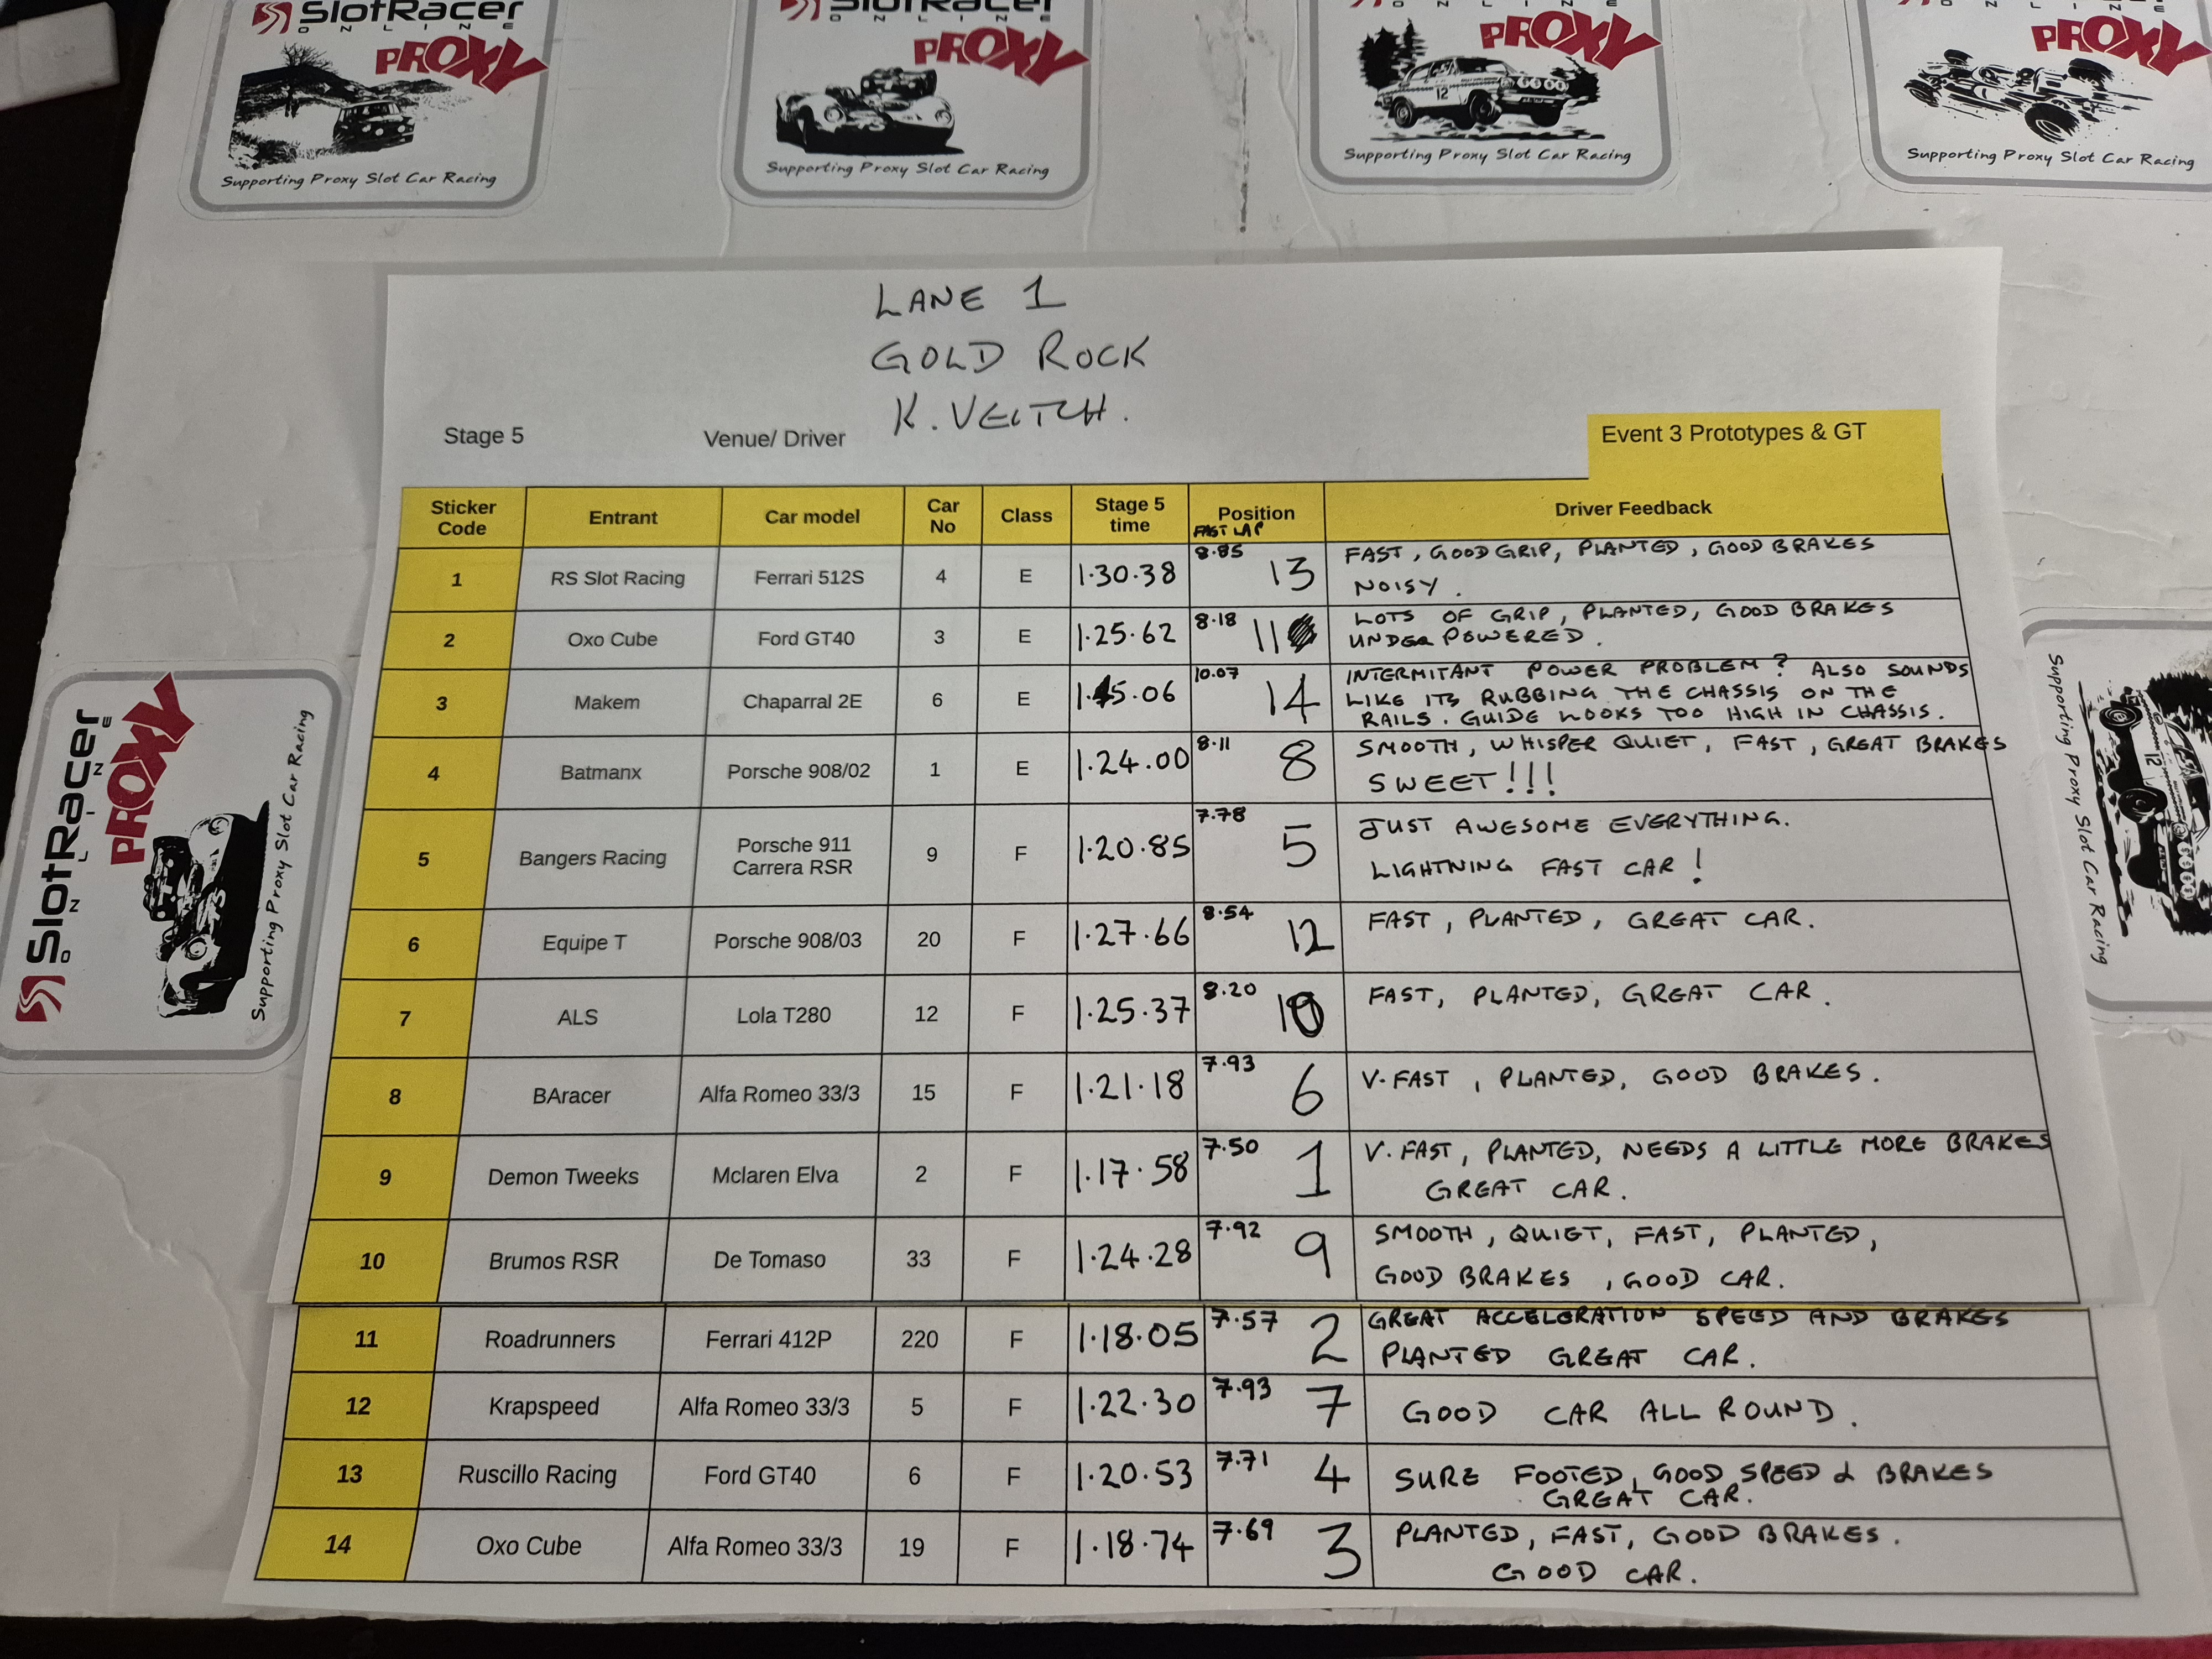 SlotRacer
ONLINE
PROXY
Supporting Proxy Slot Car Racing
SlotRacer
ONLINE
PROXY
Supporting Proxy Slot Car Racing
PROXY
12
Supporting Proxy Slot Car Racing
PROXY
Supporting Proxy Slot Car Racing
LANE 1
GOLD ROCK
K. VEITCH.
Stage 5 Venue/ Driver Event 3 Prototypes & GT
Sticker Code Entrant Car model Car No Class Stage 5 time Position FAST LAP Driver Feedback
1 RS Slot Racing Ferrari 512S 4 E 1.30.38 8.85 13 FAST, GOOD GRIP, PLANTED, GOOD BRAKES
NOISY.
2 Oxo Cube Ford GT40 3 E 1.25.62 8.18 11 LOTS OF GRIP, PLANTED, GOOD BRAKES
UNDER POWERED.
3 Makem Chaparral 2E 6 E 1.45.06 10.07 14 INTERMITANT POWER PROBLEM? ALSO SOUNDS
LIKE ITS RUBBING THE CHASSIS ON THE
RAILS. GUIDE LOOKS TOO HIGH IN CHASSIS.
4 Batmanx Porsche 908/02 1 E 1.24.00 8.11 8 SMOOTH, WHISPER QUIET, FAST, GREAT BRAKES
SWEET!!!
5 Bangers Racing Porsche 911 Carrera RSR 9 F 1.20.85 7.78 5 JUST AWESOME EVERYTHING.
LIGHTNING FAST CAR!
6 Equipe T Porsche 908/03 20 F 1.27.66 8.54 12 FAST, PLANTED, GREAT CAR.
7 ALS Lola T280 12 F 1.25.37 8.20 10 FAST, PLANTED, GREAT CAR.
8 BAracer Alfa Romeo 33/3 15 F 1.21.18 7.93 6 V.FAST, PLANTED, GOOD BRAKES.
9 Demon Tweeks Mclaren Elva 2 F 1.17.58 7.50 1 V.FAST, PLANTED, NEEDS A LITTLE MORE BRAKES
GREAT CAR.
10 Brumos RSR De Tomaso 33 F 1.24.28 7.92 9 SMOOTH, QUIET, FAST, PLANTED,
GOOD BRAKES, GOOD CAR.
11 Roadrunners Ferrari 412P 220 F 1.18.05 7.57 2 GREAT ACCELERATION SPEED AND BRAKES
PLANTED GREAT CAR.
12 Krapspeed Alfa Romeo 33/3 5 F 1.22.30 7.93 7 GOOD CAR ALL ROUND.
13 Ruscillo Racing Ford GT40 6 F 1.20.53 7.71 4 SURE FOOTED, GOOD SPEED & BRAKES
GREAT CAR.
14 Oxo Cube Alfa Romeo 33/3 19 F 1.18.74 7.69 3 PLANTED, FAST, GOOD BRAKES.
GOOD CAR.
SlotRacer
ONLINE
PROXY
Supporting Proxy Slot Car Racing
12
Supporting Proxy Slot Car Racing